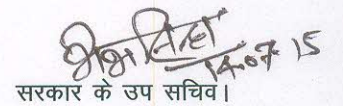 14.07.15
सरकार के उप सचिव।